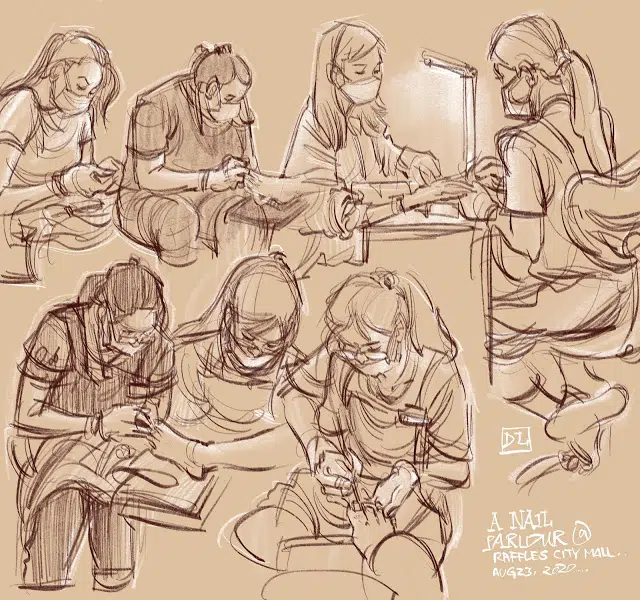 DZ
A NAIL
PARLOUR @
RAFFLES CITY MALL..
AUG 23, 2020...